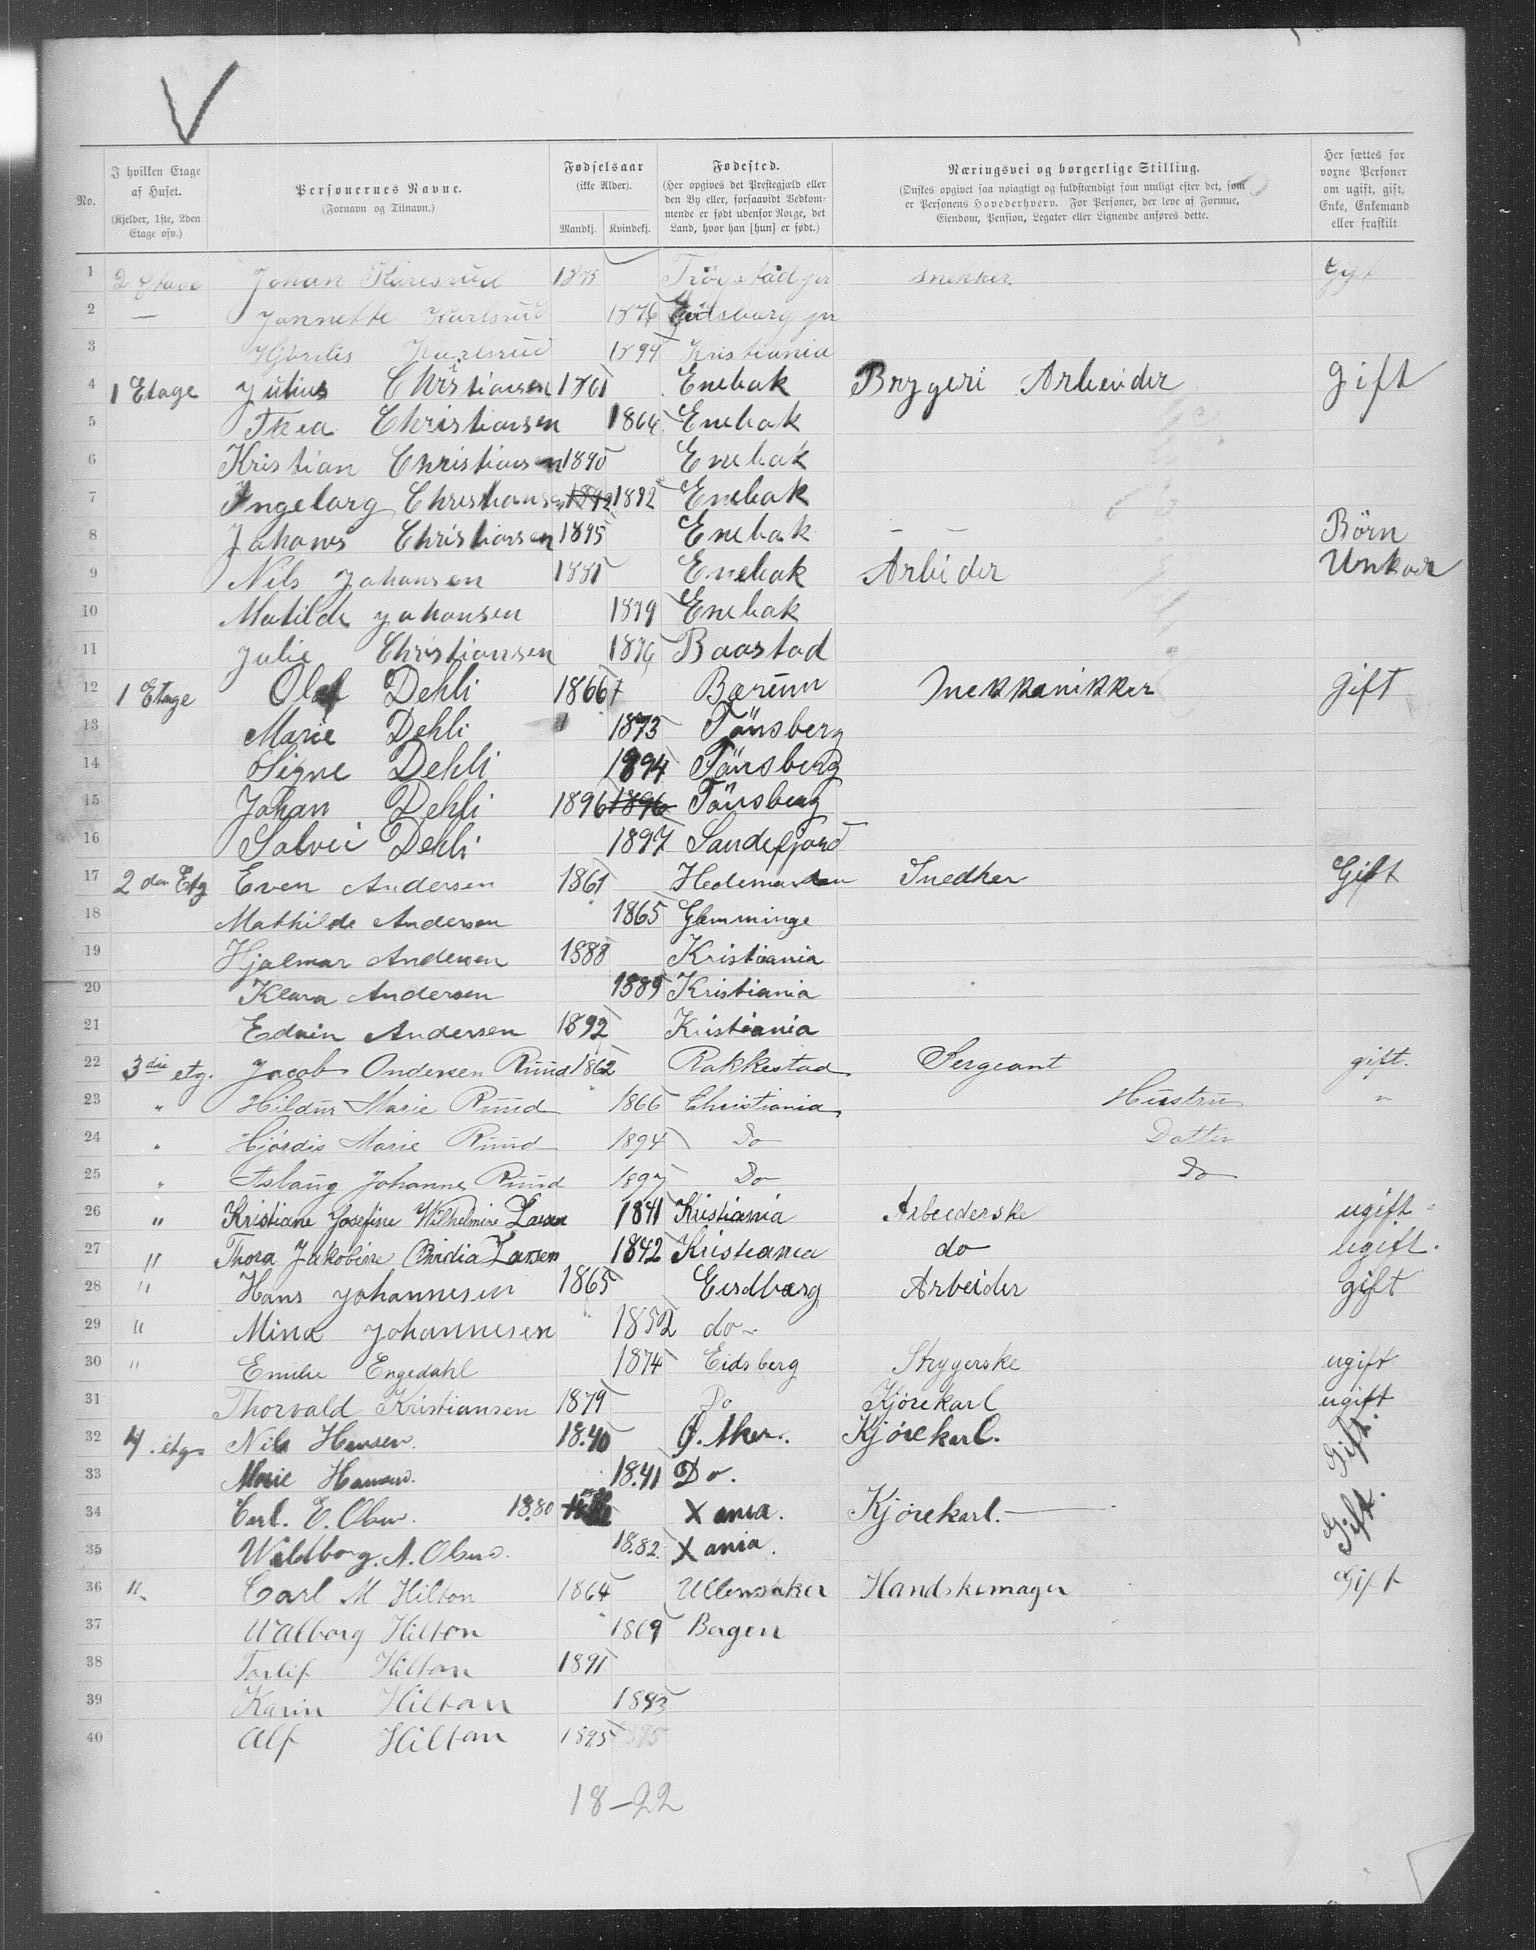 V
No.
I hvilken Etage af Huset. (Kjelder, 1ste, 2den Etage osv.)
Personernes Navne. (Fornavn og Tilnavn.)
Fødselsaar (ikke Alder). Mandkj. Kvindekj.
Fødested. (Her opgives det Prestegjæld eller den By eller, forsaavidt Vedkommende er født udenfor Norge, det Land, hvor han [hun] er født.)
Næringsvei og borgerlige Stilling. (Ønskes opgivet saa nøiagtigt og fuldstændigt som muligt efter det, som er Personens Hovederhverv. For Personer, der leve af Formue, Eiendom, Pension, Legater eller Lignende anføres dette.
Her sættes for voxne Personer om ugift, gift, Enke, Enkemand eller fraskilt
1 2 Etage Johan Karlsrud 1875 Trögstad pr snekker Gift
2 — Jannette Karlsrud 1876 Eidsberg pr
3 Hjördis Karlsrud 1899 Kristiania
4 1 Etage Julius Christiansen 1861 Enebak Brygeri Arbeider gift
5 Thea Christiansen 1864 Enebak
6 Kristian Christiansen 1890 Enebak
7 Ingeborg Christiansen 1892 1892 Enebak
8 Johanes Christiansen 1895 Enebak - - Börn
9 Nils Johansen 1881 Enebak Arbeider Unkar
10 Matilde Johansen 1879 Enebak
11 Julie Christiansen 1876 Baastad
12 1 Etage Olaf Dehli 1866 Bærum Mekkanikker gift
13 Marie Dehli 1873 Tönsberg
14 Signe Dehli 1894 Tönsberg
15 Johan Dehli 1896 1896 Tönsberg
16 Solvei Dehli 1897 Sandefjord
17 2 den Etg Even Andersen 1861 Hedemarken Snedker Gift
18 Mathilde Andersen 1865 Glemminge
19 Hjalmar Andersen 1888 Kristiania
20 Klara Andersen 1889 Kristiania
21 Edvin Andersen 1892 Kristiania
22 3 die etg. Jacob Andersen Ruud 1862 Rakkestad Sergeant gift.
23 " Hildur Marie Ruud 1866 Christiania Hustru "
24 " Hjørdis Marie Ruud 1894 Do Datter
25 " Aslaug Johanne Ruud 1897 Do Do
26 " Kristiane Josefine Wilhelmine Larsen 1841 Kristiania Arbeiderske ugift
27 " Thora Jakobine Larsen 1842 Kristiania do ugift.
28 " Hans Johannesen 1865 Eidsberg Arbeider gift
29 " Mina Johannesen 1852 do
30 " Emilie Engedahl 1874 Eidsberg Strygerske ugift
31 Thorvald Kristiansen 1879 Do Kjørekarl ugift
32 4. etg Nils Hansen. 18.40 Ø. Aker. Kjørekarl. Gift.
33 Marie Hansen. 18.41 Do.
34 Carl. E. Olsen. 18.80 Xania. Kjørekarl. Gift.
35 Waldborg. A. Olsen. 18.82. Xania.
36 " Carl M Hilton 1864 Ullensaker Handskemager Gift
37 Walborg Hilton 1869 Bergen
38 Torlif Hilton 1891
39 Karin Hilton 1893
40 Alf Hilton 1895 1895
18-22